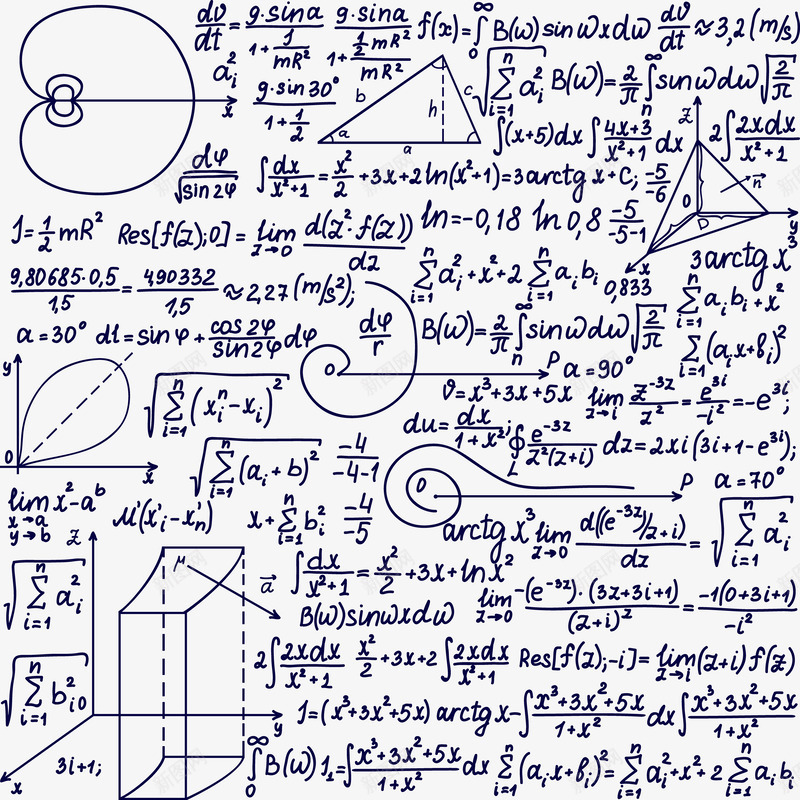 dv/dt = g·sinα / (1+ J/mR²)   g·sinα / (1+ ½mR²/mR²)   f(x)=∫₀^∞ B(ω)sinωxdω   dv/dt ≈3,2 (m/s)
a_i²   √(∑_{i=1}^n a_i²)   B(ω)=2/π ∫^∞_n sinωdω √(2/π)
x   g·sin30° / (1+ 1/2)   b   h   c   α   a
∫(x+5)dx ∫ (4x+3)/(x²+1) dx   z   2∫ 2xdx/(x²+1)
dφ/√sin2φ   ∫ dx/(x²+1) = x²/2 +3x+2ln(x²+1)=3arctg x+C;   -5/-6   0   D   n   y
J=½mR²   Res[f(z);0] = lim_{z→0} d(z²·f(z))/dz   ln=-0,18 ln0,8   -5/(-5-1)   x   3
3arctg x
9,80685·0,5/1,5 = 490332/1,5 ≈2,27 (m/s²);   ∑_{i=1}^n a_i²+x²+2 ∑_{i=1}^n a_i b_i   0,833   ∑_{i=1}^n a_i b_i+x²
α=30°   dl=sinφ+ cos2φ/sin2φ dφ   dφ/r   B(ω)=2/π ∫^∞_n sinωdω √(2/π)   ∑_{i=1}^n (a_i x+b_i)²
y   0   P   α=90°
√(∑_{i=1}^n (x_i^n-x_i)²)   v=x³+3x+5x   lim_{z→i} z^{-3z}/z² = e^{3i}/-i² = -e^{3i};
du= dx/(1+x²);   ∮_L e^{-3z}/(z²(z+i)) dz=2xi(3i+1-e^{3i});
0   x   √(∑_{i=1}^n (a_i+b)²)   -4/(-4-1)   0   P   α=70°
lim_{x→a, y→b} x²-a^b   z   μ'(x'_i-x'_n)   x+∑_{i=1}^n b_i²   -4/-5   arctg x³   lim_{z→0} d((e^{-3z})/z+i)/dz = √(∑_{i=1}^n a_i²)
√(∑_{i=1}^n a_i²)   M   a   ∫ dx/(x²+1) = x²/2 +3x+ln x²
B(ω)sinωxdω   lim_{z→0} -(e^{-3z})·(3z+3i+1)/(z+i)² = -1(0+3i+1)/-i²
√(∑_{i=1}^n b_{i0}²)   2∫ 2xdx/(x²+1)   x²/2 +3x+2∫ 2xdx/(x²+1)   Res[f(z);-i]= lim_{z→i}(z+i)f(z)
y   J=(x³+3x²+5x) arctg x-∫ (x³+3x²+5x)/(1+x²) dx∫ (x³+3x²+5x)/(1+x²)
x   3i+1;   ∫₀^∞ B(ω)   J₁=∫ (x³+3x²+5x)/(1+x²) dx   ∑_{i=1}^n (a_i x+b_i)²=∑_{i=1}^n a_i²+x²+2 ∑_{i=1}^n a_i b_i